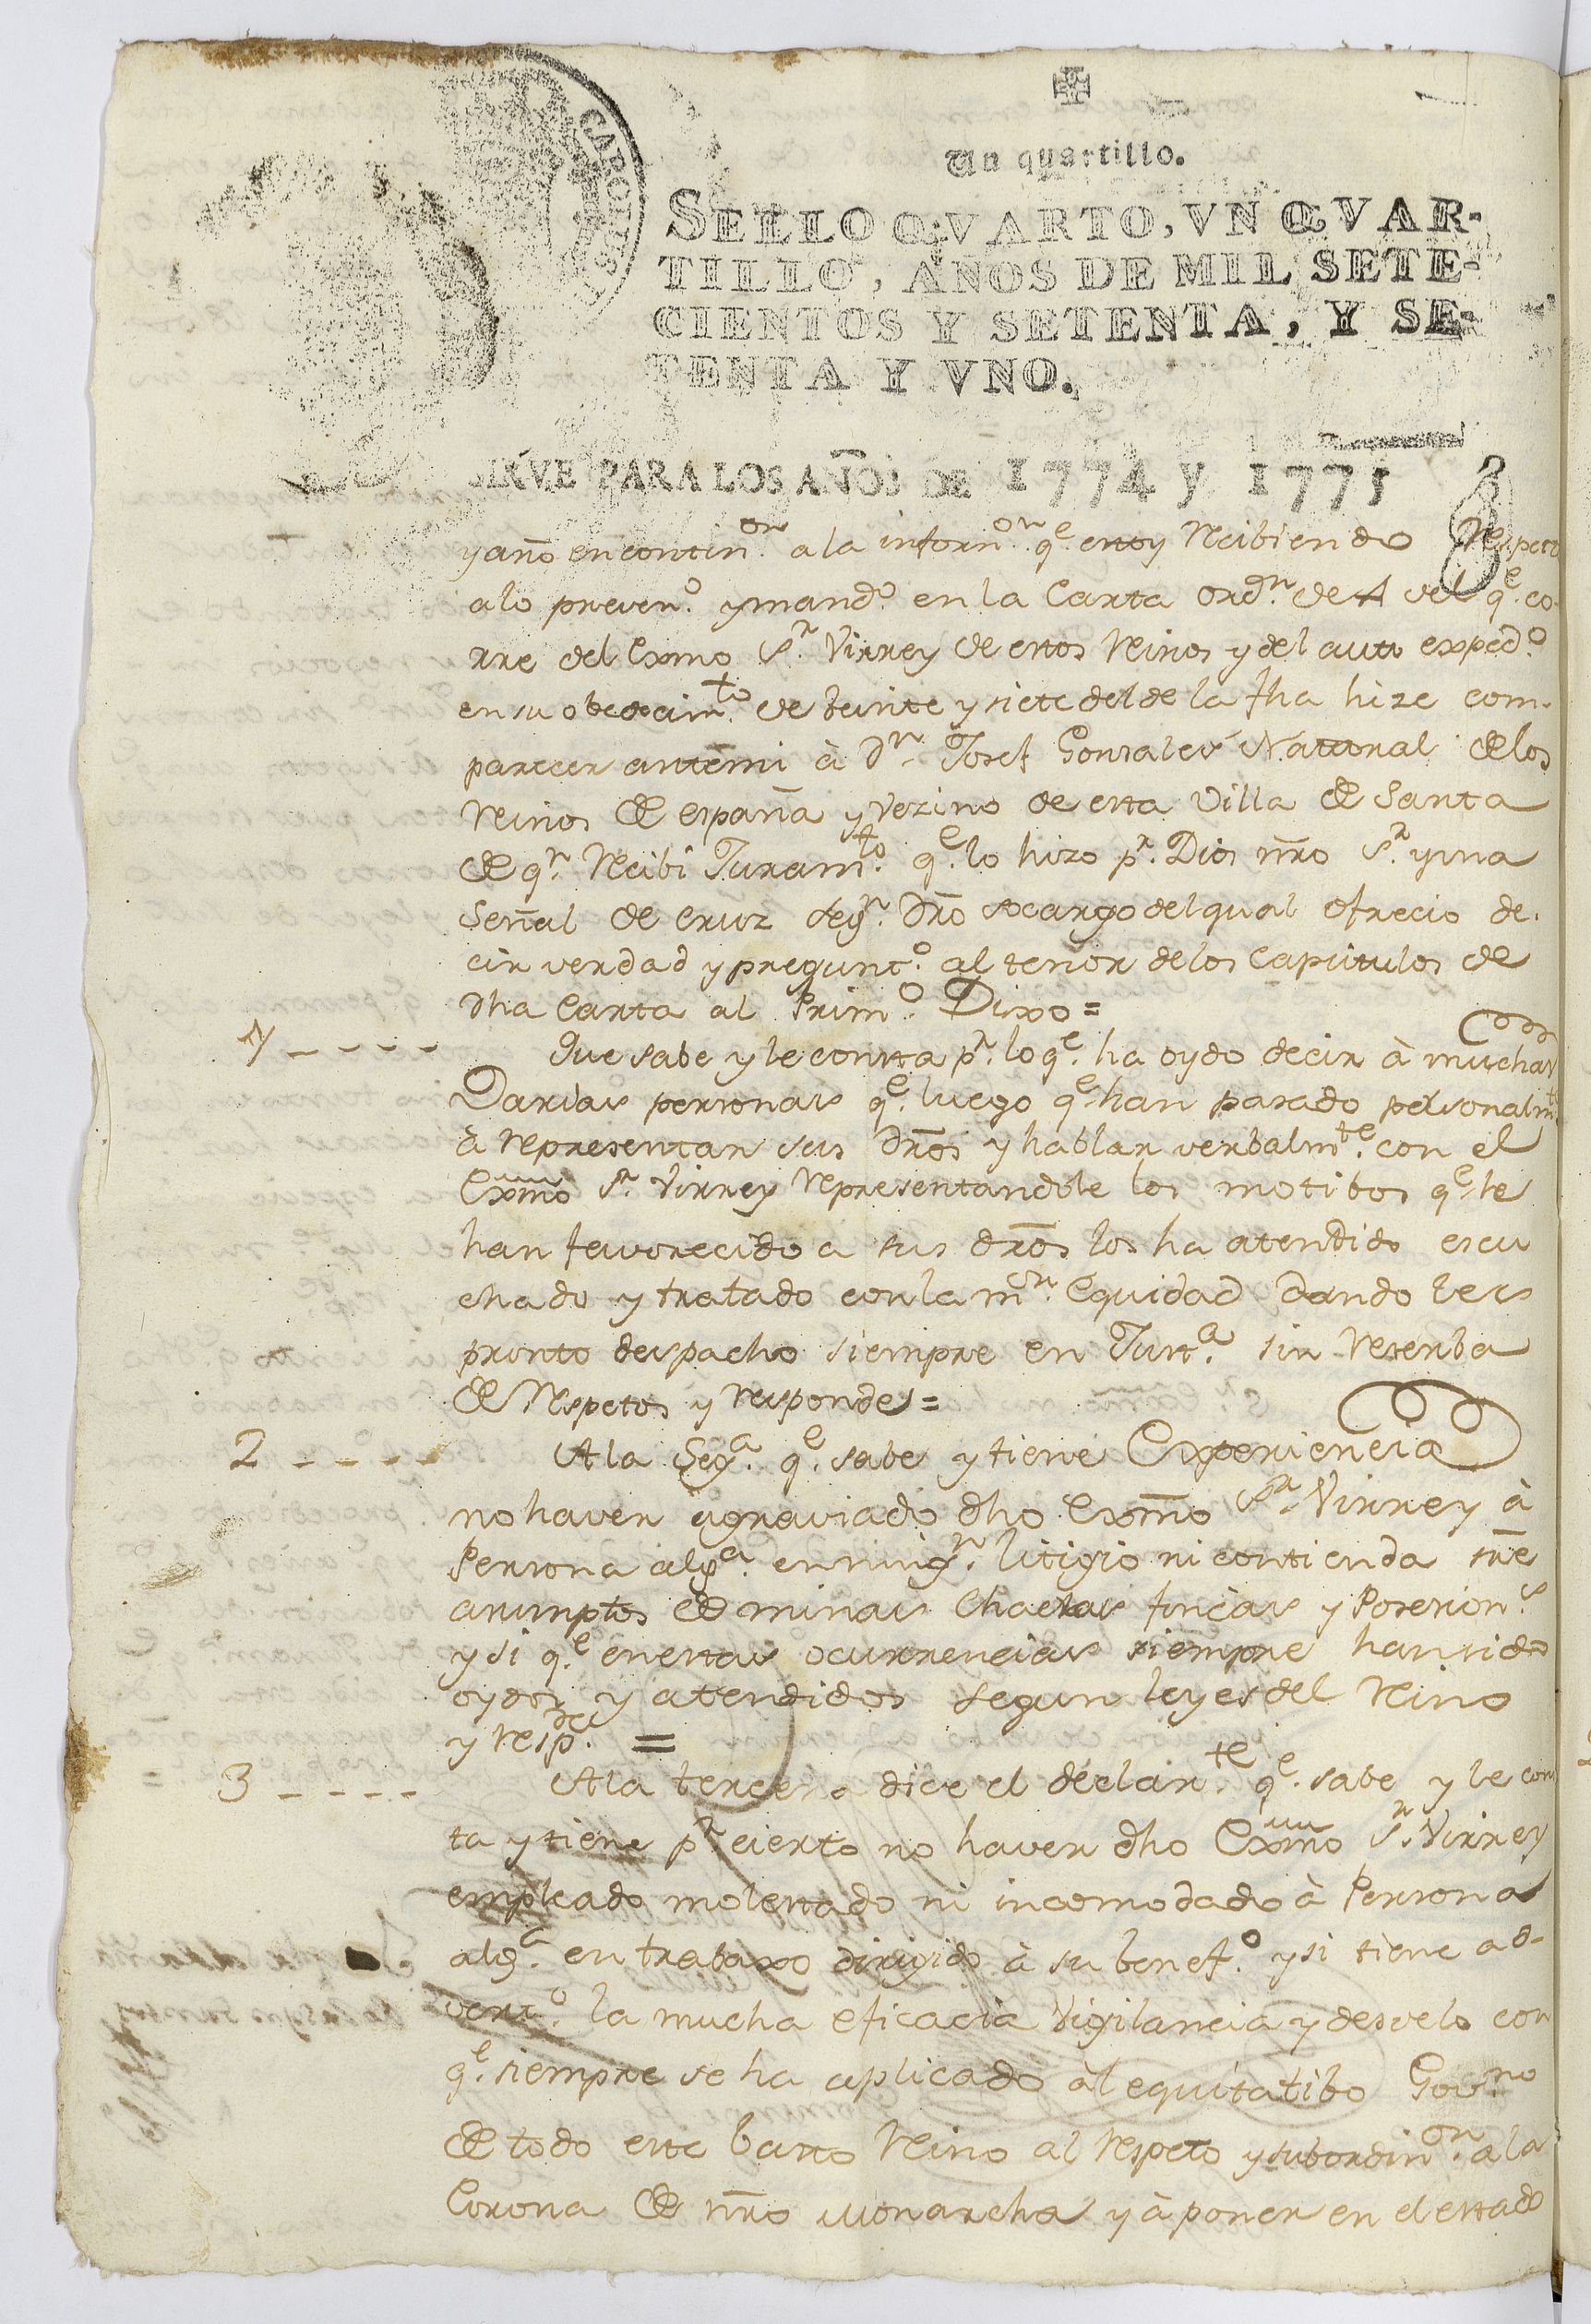 Un quartillo.
SELLO QVARTO, VN QVAR-
TILLO, AÑOS DE MIL SETE-
CIENTOS Y SETENTA, Y SE-
TENTA Y VNO.
SIRVE PARA LOS AÑOS DE 1774 y 1775
y año en contin.on a la inform.on q.e estoy Recibiendo Respecto
a lo preven.o y mand.o en la Carta ord.n de 4 del q.e co-
rre del Exmo S.r Virrey de estos Reinos y del auto exped.o
en su obedecim.to de beinte y siete del de la fha hize com-
parecer antemi à D.n Josef Gonzales Natural de los
Reinos de españa y Vezino de esta Villa de Santa
de q.n Recibi Juram.to q.e lo hizo p.r Dios nr̃o S.r y una
Señal de cruz seg.n Dr̃o so cargo del qual ofrecio de-
cir verdad y pregunt.o al tenor de los Capitulos de
dha Carta al Prim.o Dixo=
1 - - - - Que sabe y le consta p.r lo q.e ha oydo decir à muchas
Barias personas q.e luego q.e han pasado personalm.te
à representar sus dr̃os y hablar verbalm.te con el
Exmõ S.r Virrey Representandole los motibos q.e le
han favorecido a sus dr̃os los ha atendido escu
chado y tratado con la m.or Equidad Dando les
pronto despacho siempre en Just.a sin Reserba
de Respetos y Responde=
2 - - - - A la Seg.a q.e sabe y tiene Experiencia
no haver agraviado dho Exmõ S.r Virrey à
Persona alg.a en ning.n litigio ni contienda sr̃e
asumptos de minas Chacras fincas y Posesion.s
y si q.e en estas ocurrencias siempre han sido
oydos y atendidos segun leyes del Reino
y Resp.de =
3 - - - - A la tercera dice el declar.te q.e sabe y le cons
ta y tiene p.r cierto no haver dho Exmõ S.r Virrey
empleado molestado ni incomodado à Persona
alg.a en trabaxo dirigido à su benef.o y si tiene ad-
vert.o la mucha eficacia Vigilancia y desvelo con
q.e siempre se ha aplicado àl equitatibo Gov.no
de todo este basto Reino al Respeto y subordin.on a la
Corona de nr̃o Monarcha y à poner en el estado